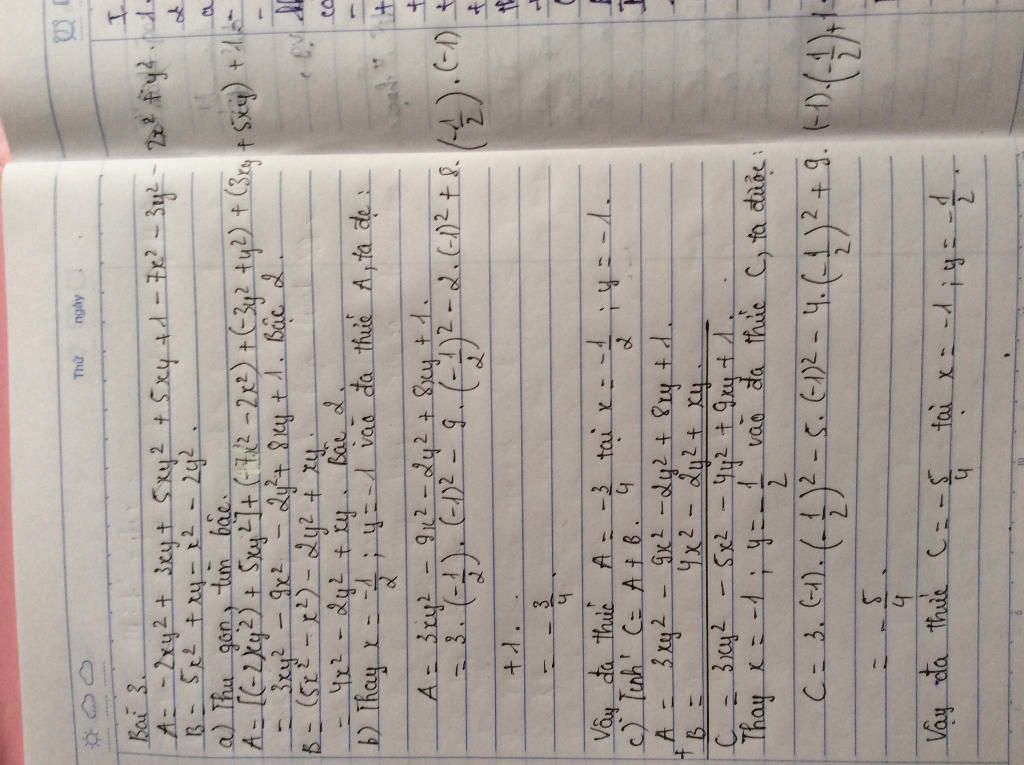 Thứ
ngày
Bài 3.
A = -2xy² + 3xy + 5xy² + 5xy + 1 - 7x² - 3y² - 2x² + y².
B = 5x² + xy - x² - 2y².
a) Thu gọn, tìm bậc.
A = [(-2xy²) + 5xy²] + (-7x² - 2x²) + (-3y² + y²) + (3xy + 5xy) + 1
= 3xy² - 9x² - 2y² + 8xy + 1. Bậc 2.
B = (5x² - x²) - 2y² + xy.
= 4x² - 2y² + xy. Bậc 2.
b) Thay x = -1/2 ; y = -1 vào đa thức A, ta đc:
A = 3xy² - 9x² - 2y² + 8xy + 1.
= 3.(-1/2).(-1)² - 9.(-1/2)² - 2.(-1)² + 8.(-1/2).(-1)
+ 1.
= -3/4
Vậy đa thức A = -3/4 tại x = -1/2 ; y = -1.
c) Tính C = A + B.
A = 3xy² - 9x² - 2y² + 8xy + 1.
+
B = 4x² - 2y² + xy.
C = 3xy² - 5x² - 4y² + 9xy + 1.
Thay x = -1 ; y = -1/2 vào đa thức C, ta được:
C = 3.(-1).(-1/2)² - 5.(-1)² - 4.(-1/2)² + 9.(-1).(-1/2) + 1
= -5/4
Vậy đa thức C = -5/4 tại x = -1 ; y = -1/2.